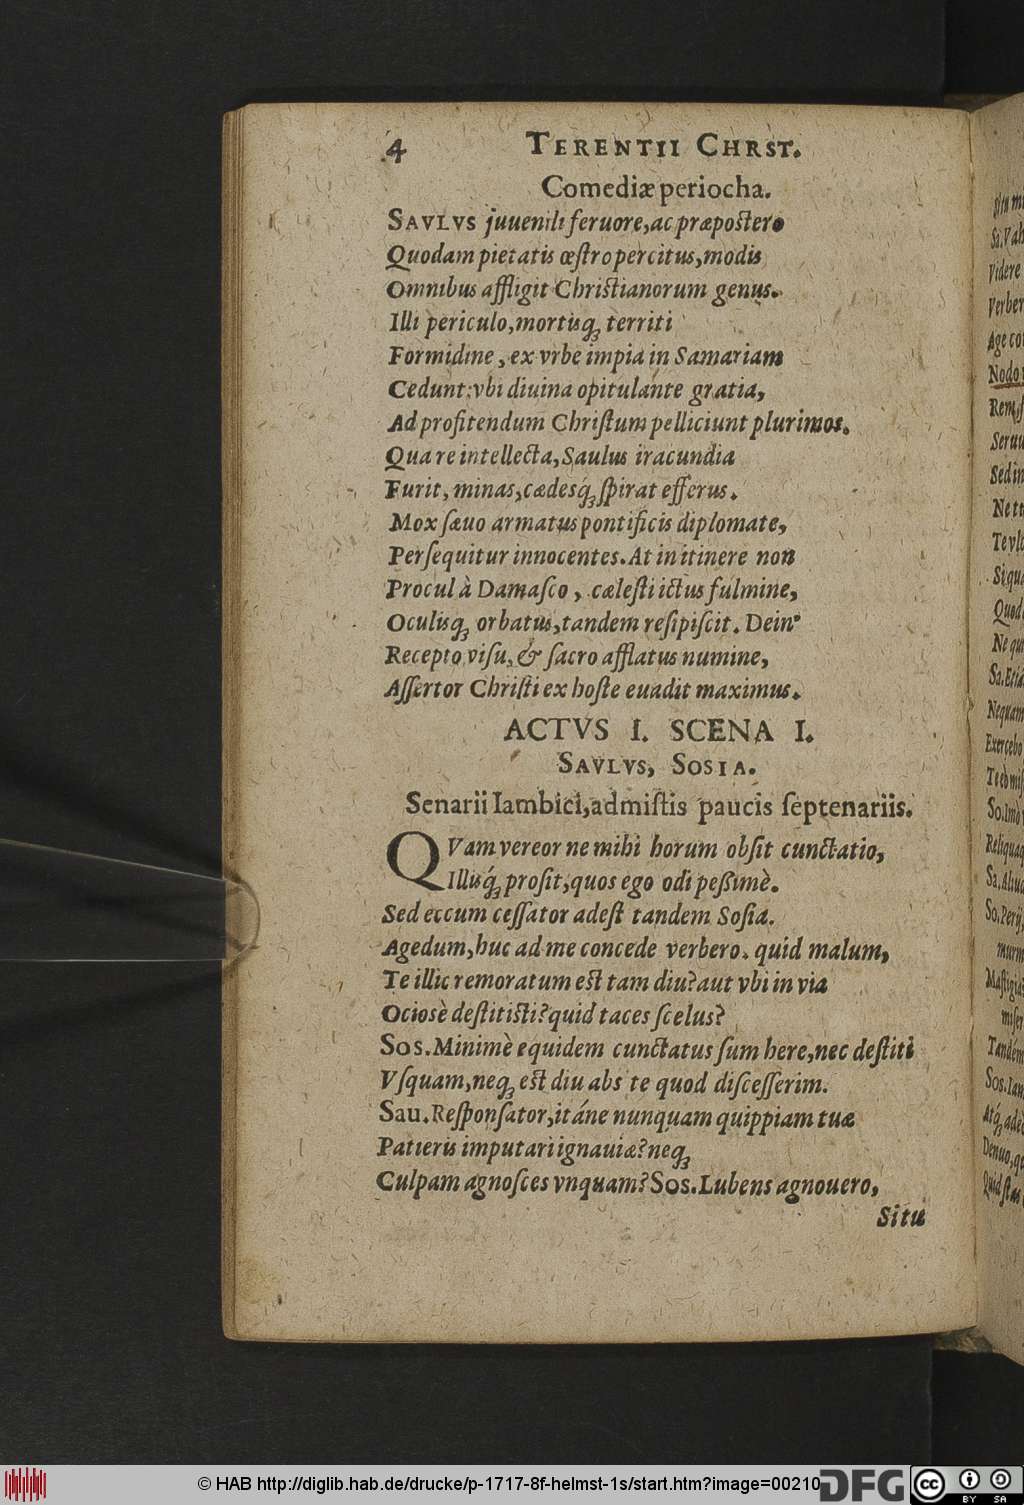 4 TERENTII CHRST.
Comediæ periocha.
SAVLVS juuenili feruore, ac præpostero
Quodam pietatis œstro percitus, modis
Omnibus affligit Christianorum genus.
Illi periculo, mortisq́ territi
Formidine, ex vrbe impia in Samariam
Cedunt: vbi diuina opitulante gratia,
Ad profitendum Chriſtum pelliciunt plurimos.
Qua re intellecta, Saulus iracundia
Furit, minas, cædesq́ ſpirat efferus.
Mox ſæuo armatus pontificis diplomate,
Perſequitur innocentes. At in itinere non
Procul à Damaſco, cæleſti ictus fulmine,
Oculisq́ orbatus, tandem reſipiſcit. Dein'
Recepto viſu, & ſacro afflatus numine,
Aſſertor Chriſti ex hoſte euadit maximus.
ACTVS I. SCENA I.
SAVLVS, SOSIA.
Senarii Iambici, admiſtis paucis ſeptenariis.
QVam vereor ne mihi horum obſit cunctatio,
Illisq́ proſit, quos ego odi peßimè.
Sed eccum ceſſator adeſt tandem Soſia.
Agedum, huc ad me concede verbero. quid malum,
Te illic remoratum est tam diu? aut vbi in via
Ociosè deſtitisti? quid taces ſcelus?
Sos. Minimè equidem cunctatus ſum here, nec deſtiti
Vſquam, neq́ est diu abs te quod diſceſſerim.
Sau. Reſponſator, itáne nunquam quippiam tuæ
Patieris imputari ignauiæ? neq́
Culpam agnoſces vnquam? Sos. Lubens agnouero,
Si tu
Sa. Vah
Videre
Nodo
© HAB http://diglib.hab.de/drucke/p-1717-8f-helmst-1s/start.htm?image=00210
DFG
cc BY SA